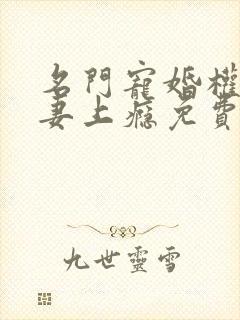 名門寵婚權
妻上癮免費
九世靈雪